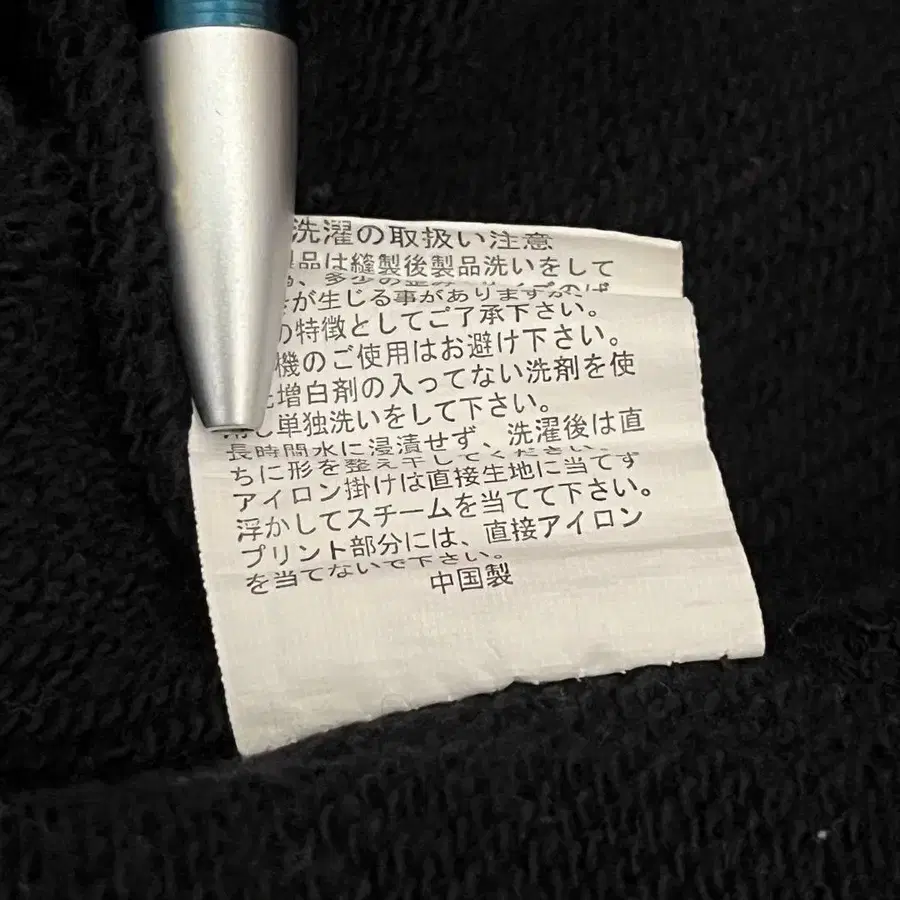 洗濯の取扱い注意
品は縫製後製品洗いをして
、多少の歪み
が生じる事がありますが、
の特徴としてご了承下さい。
機のご使用はお避け下さい。
増白剤の入ってない洗剤を使
用し単独洗いをして下さい。
長時間水に浸漬せず、洗濯後は直
ちに形を整え干してください。
アイロン掛けは直接生地に当てず
浮かしてスチームを当てて下さい。
プリント部分には、直接アイロン
を当てないで下さい。
中国製